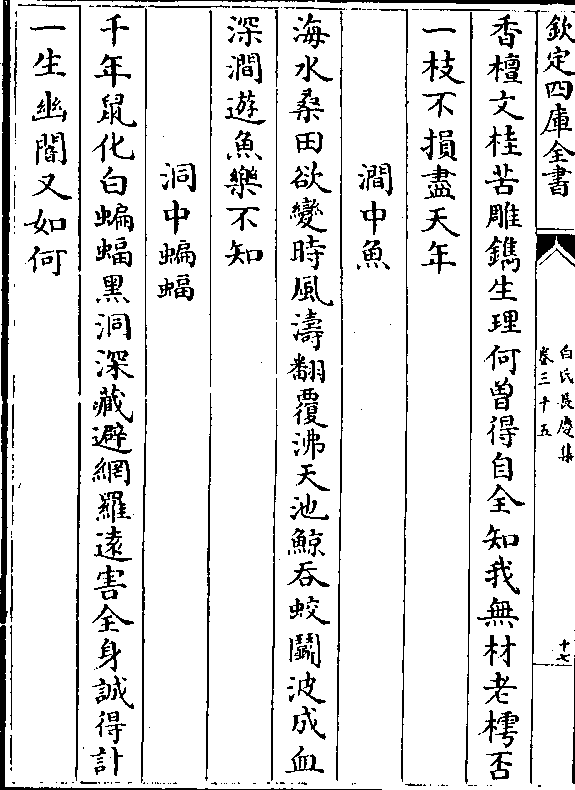 欽定四庫全書
白氏長慶集
卷三十五
十七
香檀文桂苦雕鐫生理何曾得自全知我無材老樗否
一枝不損盡天年
澗中魚
海水桑田欲變時風濤翻覆沸天池鯨吞蛟鬭波成血
深澗遊魚樂不知
洞中蝙蝠
千年鼠化白蝙蝠黑洞深藏避網羅遠害全身誠得計
一生幽闇又如何